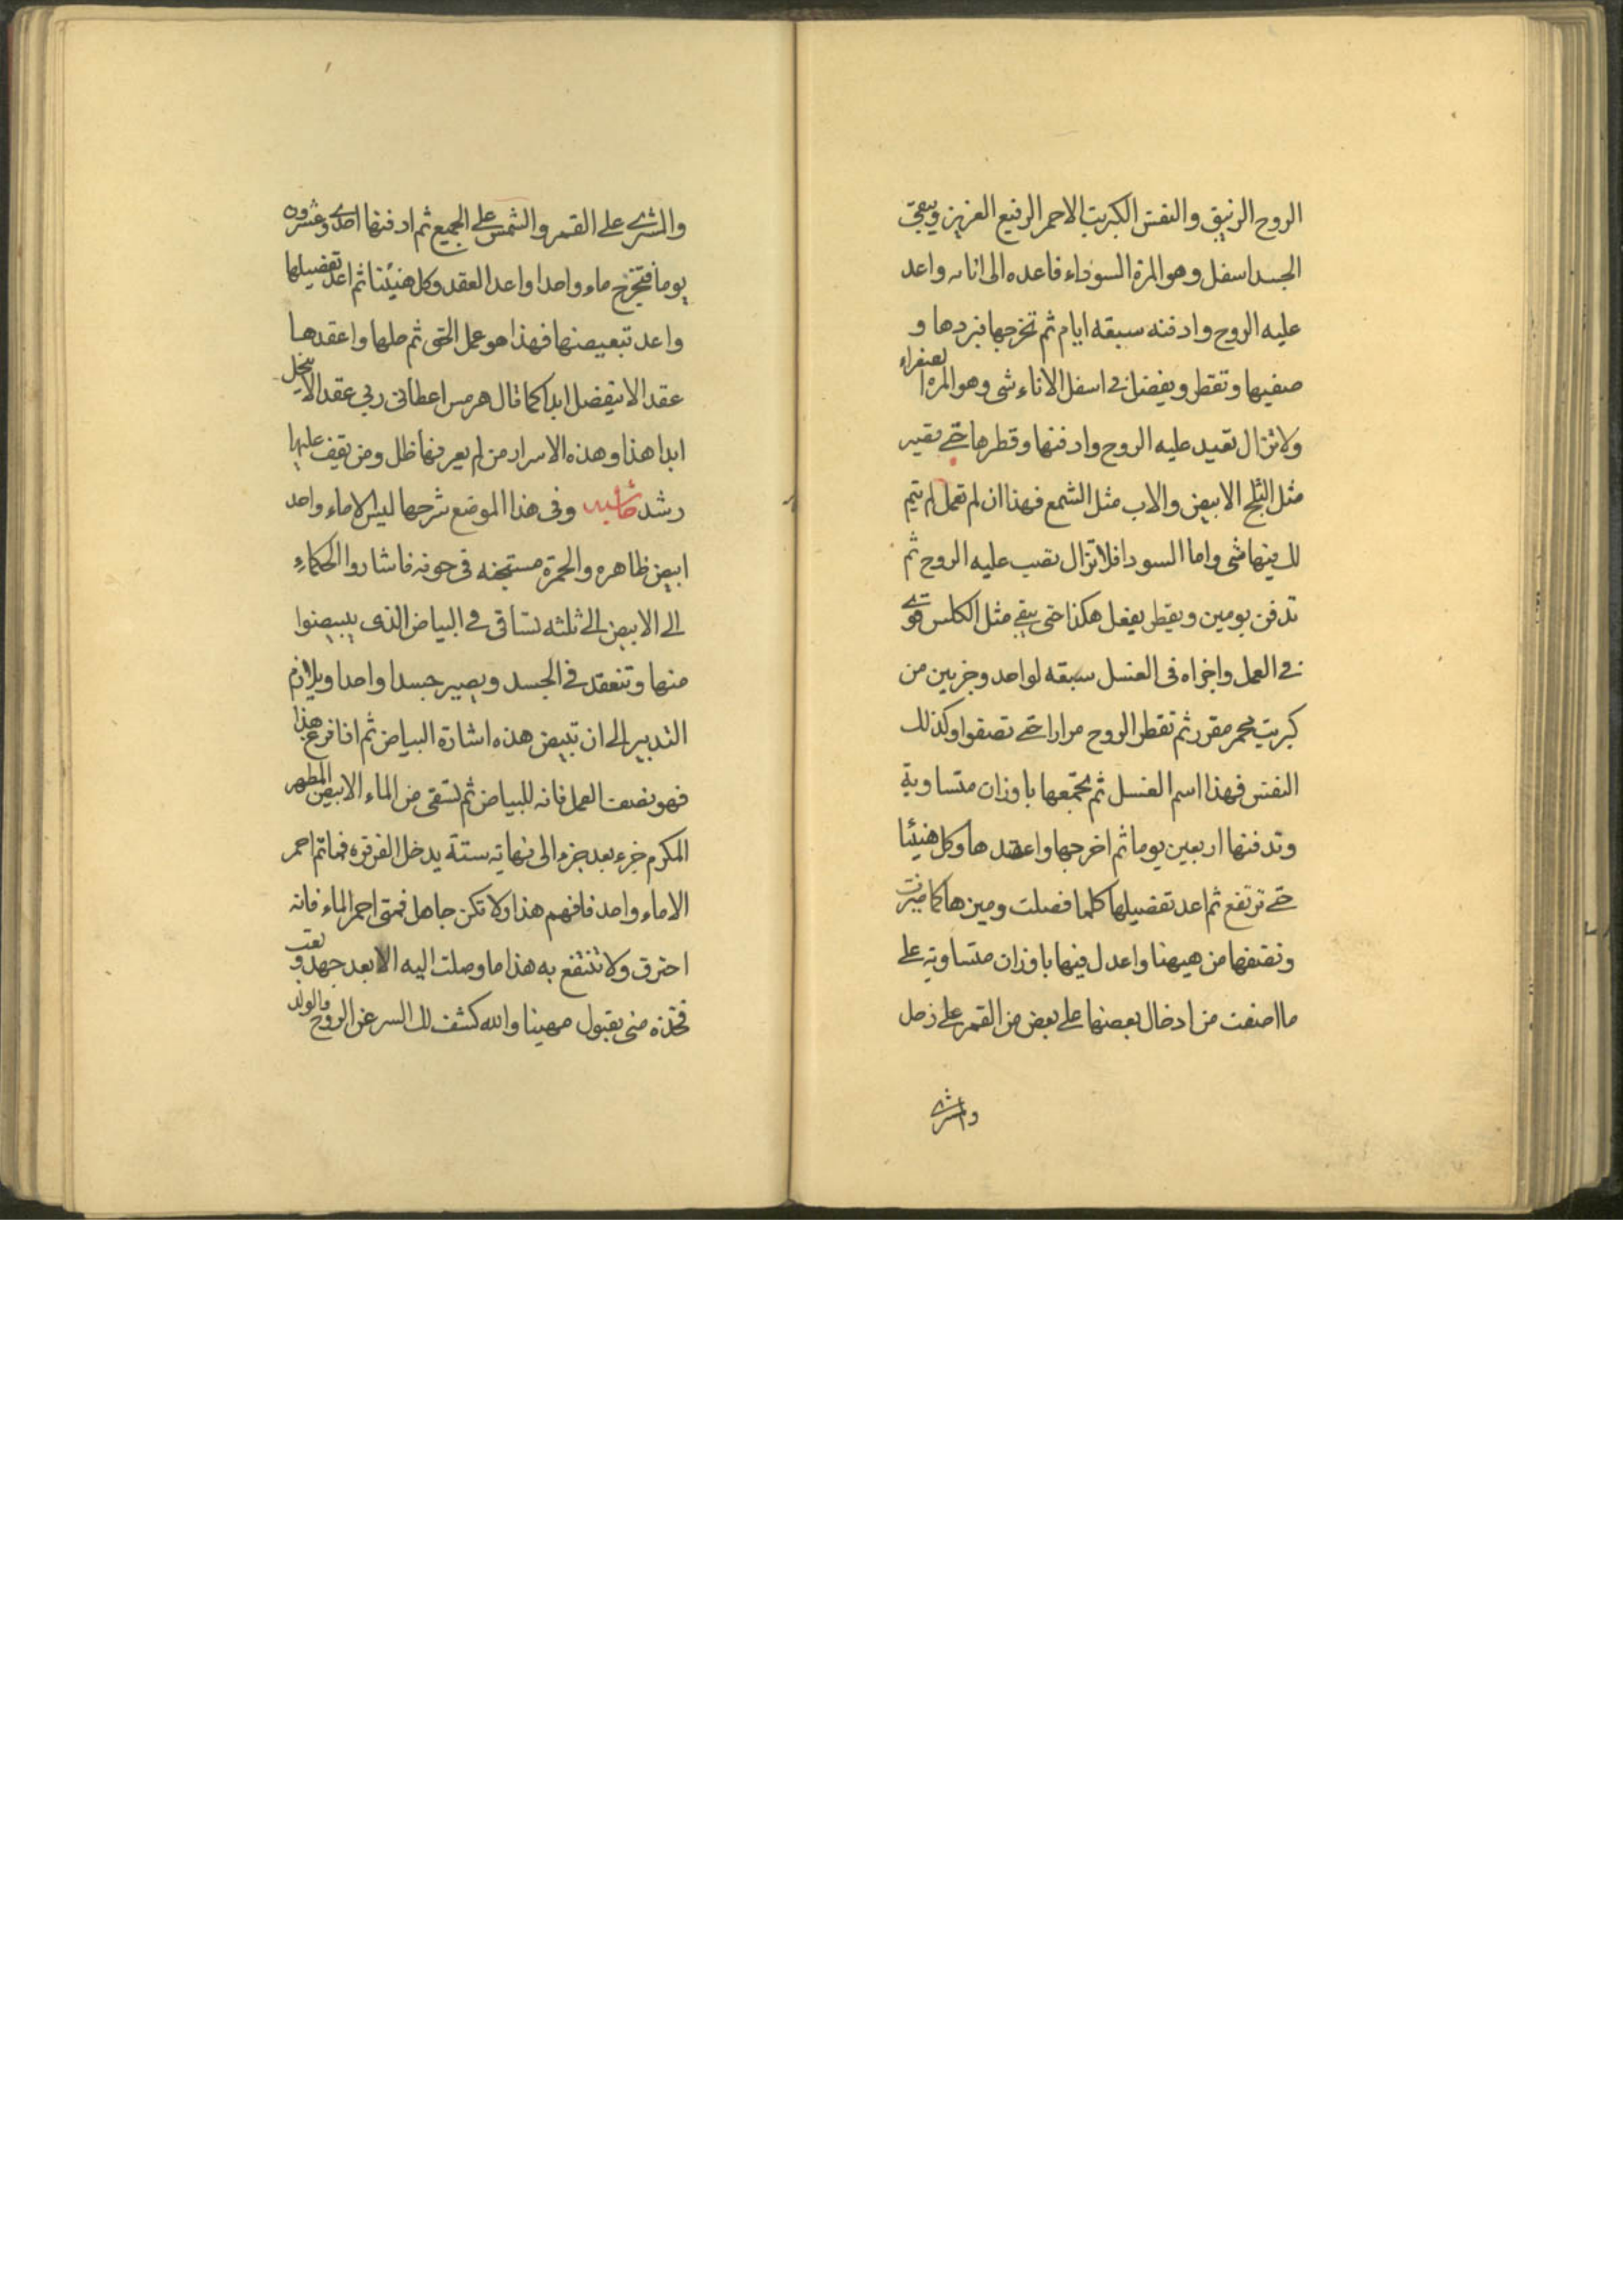 الروح الزنيق والنفس الكبريت الاحمر الرفيع العزيز ويبقى
الجسد اسفل وهو المرة السوداء فاعده الى انائه واعد
عليه الروح وادفنه سبقه ايام ثم تخرجها فبردها و
صفيها وتقطر ويفضل فى اسفل الاناء شى وهو المره الصفراء
ولا تزال تعيد عليه الروح وادفنها وقطرها حتى تصير
مثل الثلج الابيض والاب مثل الشمع فهذا ان لم تعمل لم يتم
لك منها شى واما السودا فلا تزال تصب عليه الروح ثم
تدفن يومين ويقطر يفعل هكذا حتى يبقى مثل الكلس قوى
فى العمل واجزاه فى الغسل سبقه لواحد وجزيين من
كبريت محمر مقرر ثم تقطر الروح مرارا حتى تصفوا وكذلك
النفس فهذا اسم الغسل ثم تجمعها باوزان متساوية
وتدفنها اربعين يوما ثم اخرجها واعقدها وكل هنيئا
حتى ترتفع ثم اعد تفضيلها كلما فصلت وميزها كما ميزت
ونصفها من هيهنا واعدل فيها باوزان متساوية على
ما اضفت من ادخال بعضها على بعض من القمر على زحل
والمشترى
والمشترى على القمر والشمس على الجميع ثم ادفنها احدى وعشرون
يوما فتخرج ماء واحدا واعد العقد وكل هنيئنا ثم اعد تفضيلها
واعد تبعيضها فهذا هو عمل الحق ثم حلها واعقدها
عقد الا ينفصل ابدا كما قال هرمس اعطانى ربى عقد الا ينحل
ابدا هذا وهذه الاسرار من لم يعرفها ظل ومن يقف عليها
رشد حاشيه وفى هذا الموضع شرحها ليس الا ماء واحد
ابيض ظاهره والحمرة مستجنه فى جوفه فاشاروا الحكماء
الى الابيض الى ثلثه تساقى فى البياض الذى يبيضوا
منها وتنعقد فى الجسد ويصير جسدا واحدا ويلازم
التدبير الى ان تبيض هذه اشارة البياض ثم اذا فرغ هذا
فهو نصف العمل فانه للبياض ثم تسقى من الماء الابيض المطهر
المكرم جزء بعد جزء الى نهاية ستة يدخل الفرفره فما تم احمر
الا ماء واحد فافهم هذا ولا تكن جاهل فمتى احمر الماء فانه
احترق ولا تنتفع به هذا ما وصلت اليه الا بعد جهد وتعب
فخذه منى بقبول مهينا والله كشف لك السر عن الروح والولد